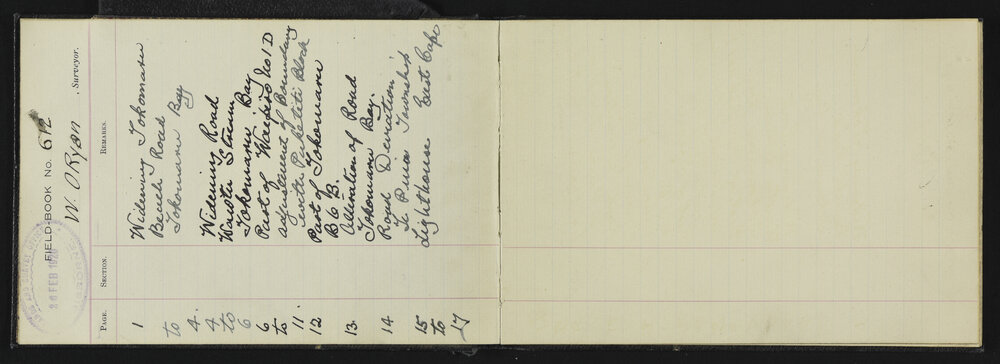 FIELD-BOOK No. 612
W. O'Ryan, Surveyor.
26 FEB
PAGE. SECTION. REMARKS.
1 Widening Tokomaru
Beach Road
to Tokomaru Bay
4.
4 Widening Road
to Waiotu Stream
6 Tokomaru Bay
6 Part of No 1 D
to adjustment of Boundary
with Puketiti Block
11.
12 Part of Tokomaru
B 6 B.
13 Alteration of Road
Tokomaru Bay.
14 Road Deviation,
Te Puia Township
15 Lighthouse East Cape
to
17